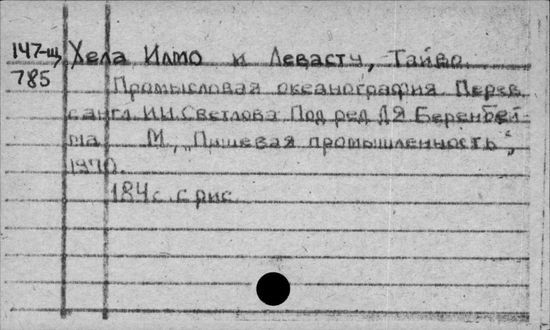 147-щ Хела Илмо и Левасту, Тайво.
785
Промысловая океанография Перев
с англ. И.И. Светлова Под ред Д Я Беренбей-
ма М., „Пищевая промышленность",
1970.
184 с. с рис.